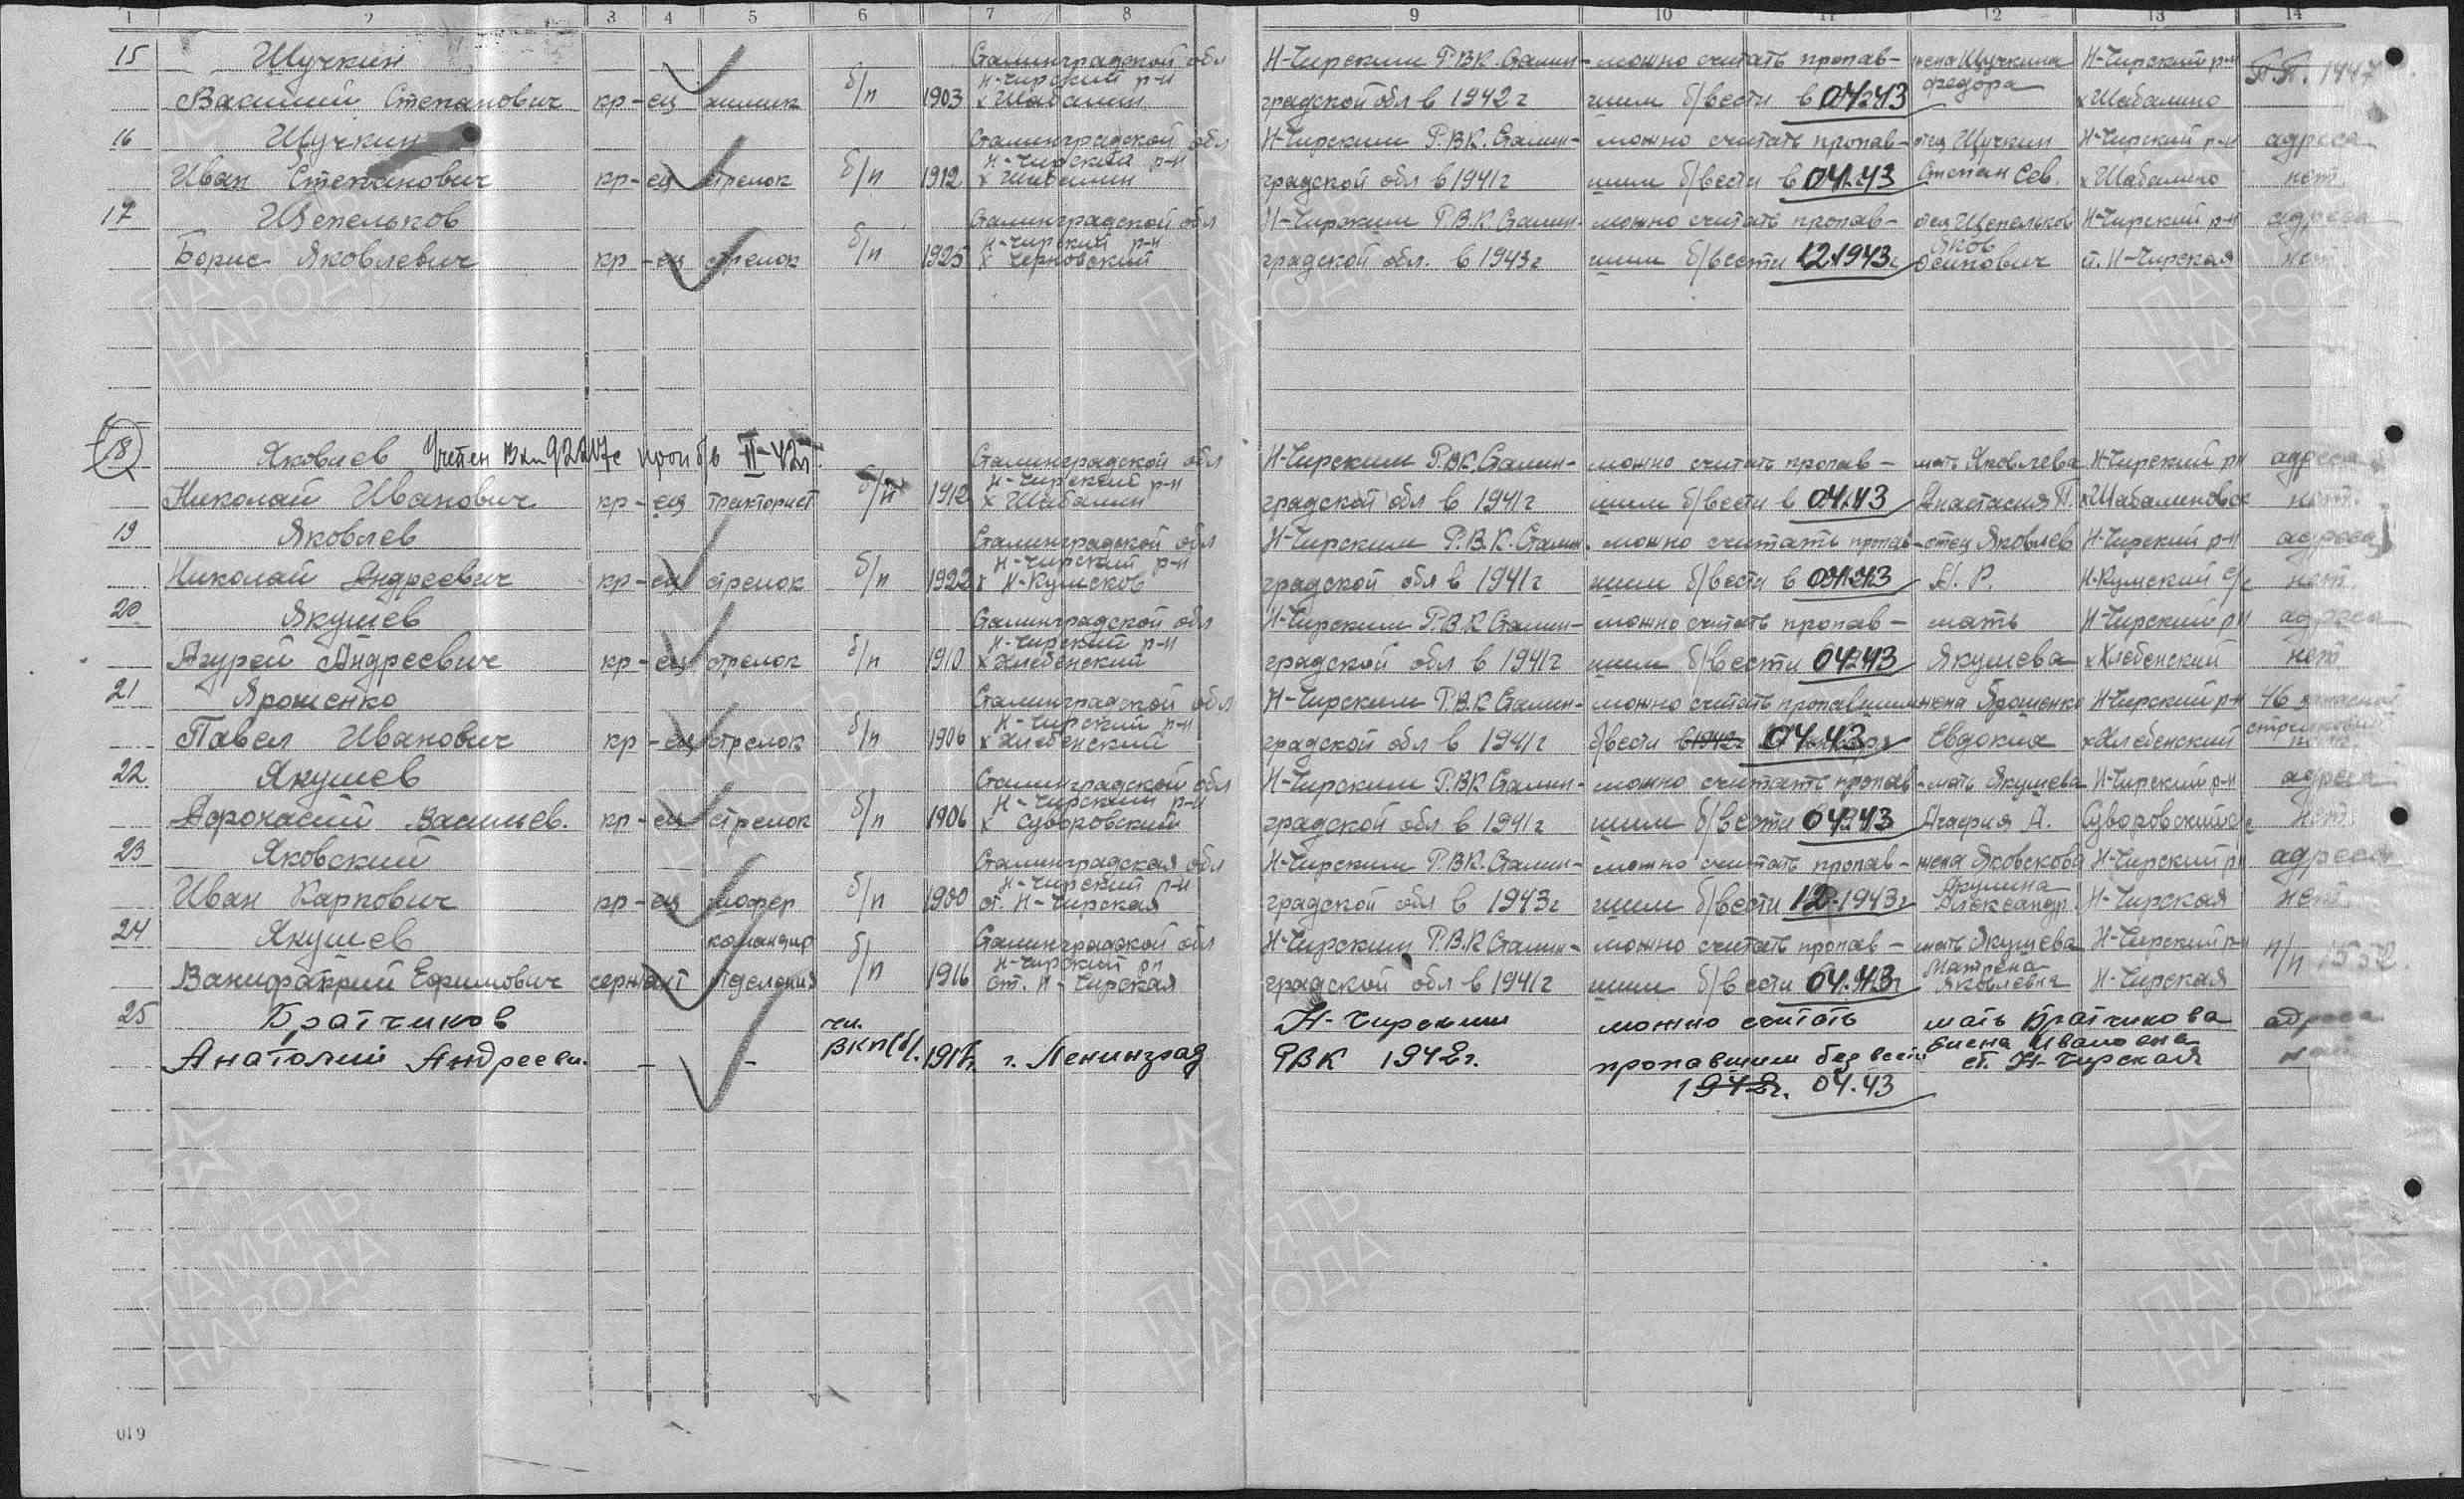 1 2 3 4 5 6 7 8 9 10 11 12 13 14
15 Щучкин Сталинградской обл Н-Чирским Р.В.К. Сталин- можно считать пропав- жена Щучкина Н-Чирский р-н П.П. 1447
Василий Степанович кр-ец химик б/п 1903 Н-Чирский р-н х Шабалин градской обл в 1942 г шим б/вести в 04.43 Федора х Шабалино
16 Щучкин Сталинградской обл Н-Чирским Р.В.К. Сталин- можно считать пропав- отец Щучкин Н-Чирский р-н адреса
Иван Степанович кр-ец стрелок б/п 1912 Н-Чирский р-н х Шабалин градской обл в 1941 г шим б/вести в 04.43 Степан Сев. х Шабалино нет
17 Щепельков Сталинградской обл Н-Чирским Р.В.К. Сталин- можно считать пропав- отец Щепельков Н-Чирский р-н адреса
Борис Яковлевич кр-ец стрелок б/п 1925 Н-Чирский р-н х Черновский градской обл. в 1943 г шим б/вести 12.1943 г Яков Осипович ст. Н-Чирская нет
18 Яковлев Учтен 92217с проп б/в II-42г. Сталинградской обл Н-Чирским Р.В.К. Сталин- можно считать пропав- мать Яковлева Н-Чирский р-н адреса
Николай Иванович кр-ец тракторист б/п 1912 Н-Чирский р-н х Шабалин градской обл в 1941 г шим б/вести в 04.43 Анастасия П. х Шабалиновск нет.
19 Яковлев Сталинградской обл Н-Чирским Р.В.К. Сталин- можно считать пропав- отец Яковлев Н-Чирский р-н адреса
Николай Андреевич кр-ец стрелок б/п 1922 Н-Чирский р-н х Н-Кумсков градской обл в 1941 г шим б/вести в 04.43 А. Р. Н-Кумский с/с нет
20 Якушев Сталинградской обл Н-Чирским Р.В.К. Сталин- можно считать пропав- мать Н-Чирский р-н адреса
Агурей Андреевич кр-ец стрелок б/п 1910 Н-Чирский р-н х Хлебенский градской обл в 1941 г шим б/вести 04.43 Якушева х Хлебенский нет
21 Ярошенко Сталинградской обл Н-Чирским Р.В.К. Сталин- можно считать пропавшим жена Ярошенко Н-Чирский р-н 46 запасной
Павел Иванович кр-ец стрелок б/п 1906 Н-Чирский р-н х Хлебенский градской обл в 1941 г б/вести в 1942г 04.43 Евдокия х Хлебенский стрелковый полк
22 Якушев Сталинградской обл Н-Чирским Р.В.К. Сталин- можно считать пропав- мать Якушева Н-Чирский р-н адреса
Афонасий Васильев. кр-ец стрелок б/п 1906 Н-Чирский р-н х Суворовский градской обл в 1941 г шим б/вести 04.43 Агафия А. Суворовский с/с нет
23 Яковский Сталинградская обл Н-Чирским Р.В.К. Сталин- можно считать пропав- жена Яковскова Н-Чирский р-н адреса
Иван Карпович кр-ец шофер б/п 1900 Н-Чирский р-н ст. Н-Чирская градской обл в 1943 г шим б/вести 12.1943 г Акулина Александр. Н-Чирская нет
24 Якушев командир Сталинградской обл Н-Чирским Р.В.К. Сталин- можно считать пропав- мать Якушева Н-Чирский р-н п/п
Ванифатий Ефимович сержант отделения б/п 1916 Н-Чирский рн ст. Н-Чирская градской обл в 1941 г шим б/вести 04.43г Матрена Яковлевна Н-Чирская
25 Братчиков чл. Н-Чирским можно считать мать Братчикова адреса
Анатолий Андрееви. - - ВКП(б). г. Ленинград РВК 1942г. пропавшим без вести Елена Ивановна ст. Н-Чирская нет
1942г. 04.43
019
ПАМЯТЬ НАРОДА